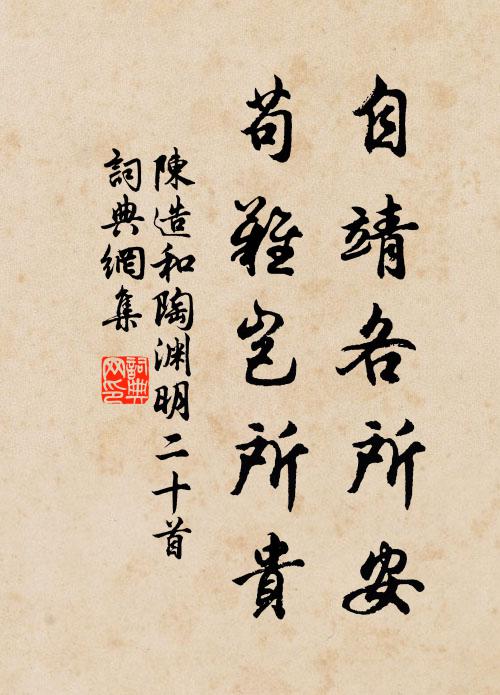 自靖各所安
苟難岂所貴
陳造和陶淵明二十首
詞典網集
詞典网印